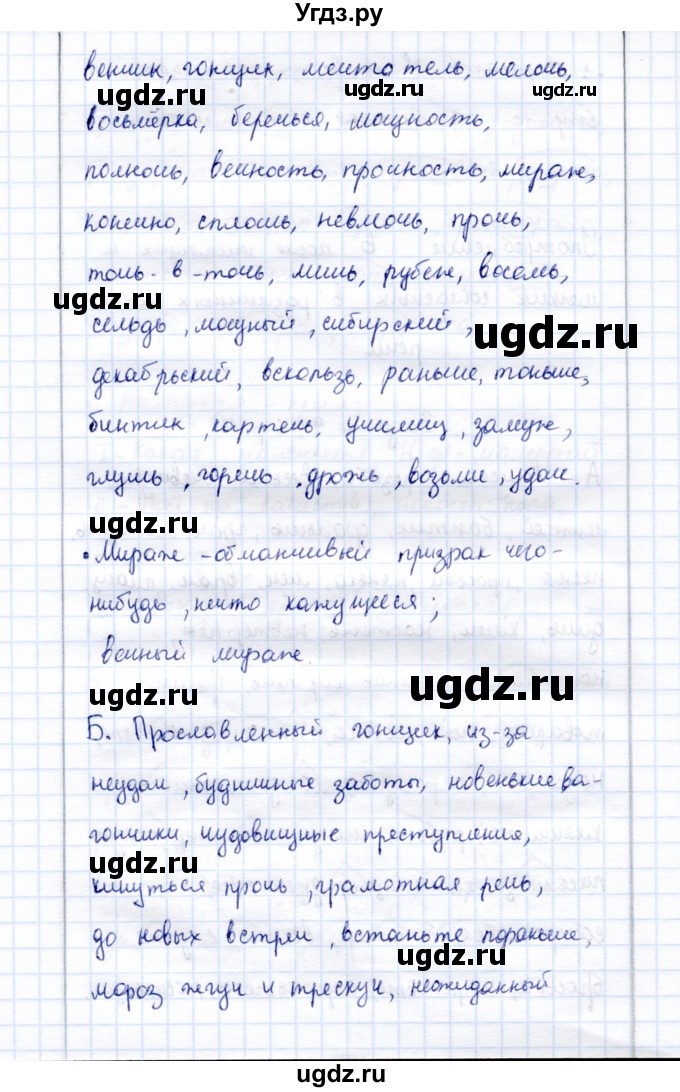 Угдз.ру
венчик, гонщик, мечтатель, мелочь,
ugdz.ru ugdz.ru ugdz.ru
восьмёрка, беречься, мощность,
полночь, вечность, прочность, мираж,
конечно, сплошь, невмочь, прочь,
точь-в-точь, мишь, рубеж, восемь,
ugdz.ru
сельдь, мощный, сибирский,
ugdz.ru
декабрьский, вскользь, раньше, тоньше,
бинтик, картечь, училищ, замуж,
глушь, горечь, дрожь, возьми, удач.
ugdz.ru ugdz.ru
• Мираж - обманчивый призрак чего-
нибудь, нечто кажущееся;
вечный мираж.
ugdz.ru ugdz.ru
Б. Прославленный гонщик, из-за
неудач, будничные заботы, новенькие ва-
гончики, чудовищные преступления,
ugdz.ru
кинуться прочь, грамотная речь,
до новых встреч, встаньте пораньше,
ugdz.ru
мороз жгуч и трескуч, неожиданный
ugdz.ru